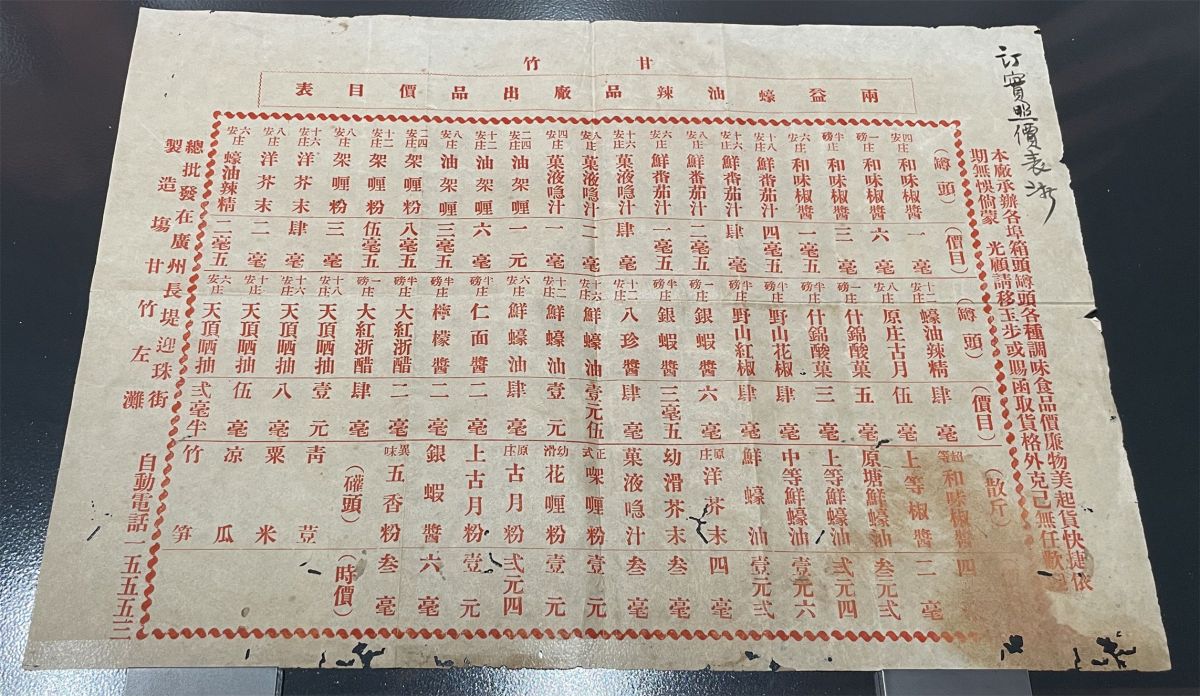 甘竹
兩益蠔油辣品廠出品價目表
訂實照價表
本廠承辦各埠箱頭罇頭各種調味食品價廉物美起貨快捷依
期無悞倘蒙 光顧請移玉步或賜函取貨格外克己無任歡迎
(罇頭) (價目)
四安庄 和味椒醬 一毫
一磅庄 和味椒醬 六毫
半磅庄 和味椒醬 三毫
六安庄 和味椒醬 一毫五
十八安庄 鮮番茄汁 四毫五
十六安庄 鮮番茄汁 肆毫
八安庄 鮮番茄汁 二毫五
六安庄 鮮番茄汁 一毫五
十六安庄 菓液喼汁 肆毫
八安庄 菓液喼汁 二毫
四安庄 菓液喼汁 一毫
二四安庄 油架喱 一元
十二安庄 油架喱 六毫
八安庄 油架喱 三毫五
二四安庄 架喱粉 八毫五
十二安庄 架喱粉 伍毫五
八安庄 架喱粉 三毫
十六安庄 洋芥末 肆毫
八安庄 洋芥末 二毫
六安庄 蠔油辣精 二毫五
(罇頭) (價目)
十二安庄 蠔油辣精 肆毫
八安庄 原庄古月 伍毫
一磅庄 什錦酸菓 五毫
半磅庄 什錦酸菓 三毫
十二安庄 野山花椒 肆毫
半磅庄 野山紅椒 肆毫
一磅庄 銀蝦醬 六毫
半磅庄 銀蝦醬 三毫五
十二安庄 八珍醬 肆毫
十六安庄 鮮蠔油 壹元伍
十二安庄 鮮蠔油 壹元
六安庄 鮮蠔油 肆毫
半磅庄 仁面醬 二毫
半磅庄 檸檬醬 二毫
半磅庄 大紅浙醋 二毫
一磅庄 大紅浙醋 肆毫
十八安庄 天頂晒抽 壹元
十六安庄 天頂晒抽 八毫
十二安庄 天頂晒抽 伍毫
六安庄 天頂晒抽 弍毫半
(散斤)
超等和味椒醬 四
上等椒醬 二毫
原塘鮮蠔油 叁元弍
上等鮮蠔油 弍元四
中等鮮蠔油 壹元六
鮮蠔油 壹元弍
原庄洋芥末 四毫
幼滑芥末 叁毫
菓液喼汁 叁毫
正式㗎喱粉 壹元
幼滑花喱粉 壹元
原庄古月粉 弍元四
上古月粉 壹元
銀蝦醬 六毫
異味五香粉 叁毫
(罐頭) (時價)
青荳
粟米
凉瓜
竹笋
總批發在廣州長堤迎珠街
製造塲甘竹左灘
自動電話一五五五